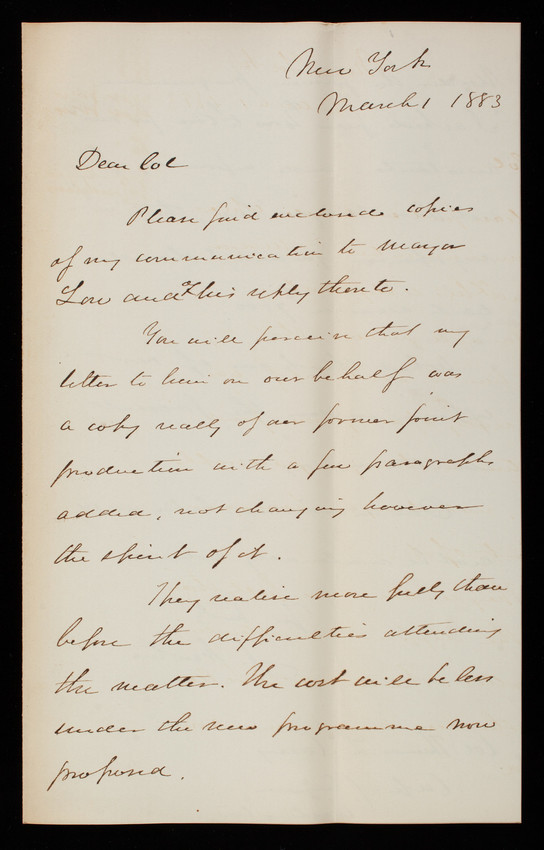 New York
March 1 1883
Dear Col
Please find enclosed copies
of my communication to Mayor
Low and his reply thereto.
You will perceive that my
letter to him on our behalf was
a copy really of our former joint
production with a few paragraphs
added, not changing however
the spirit of it.
They realise more fully than
before the difficulties attending
the matter. The cost will be less
under the new programme now
proposed.